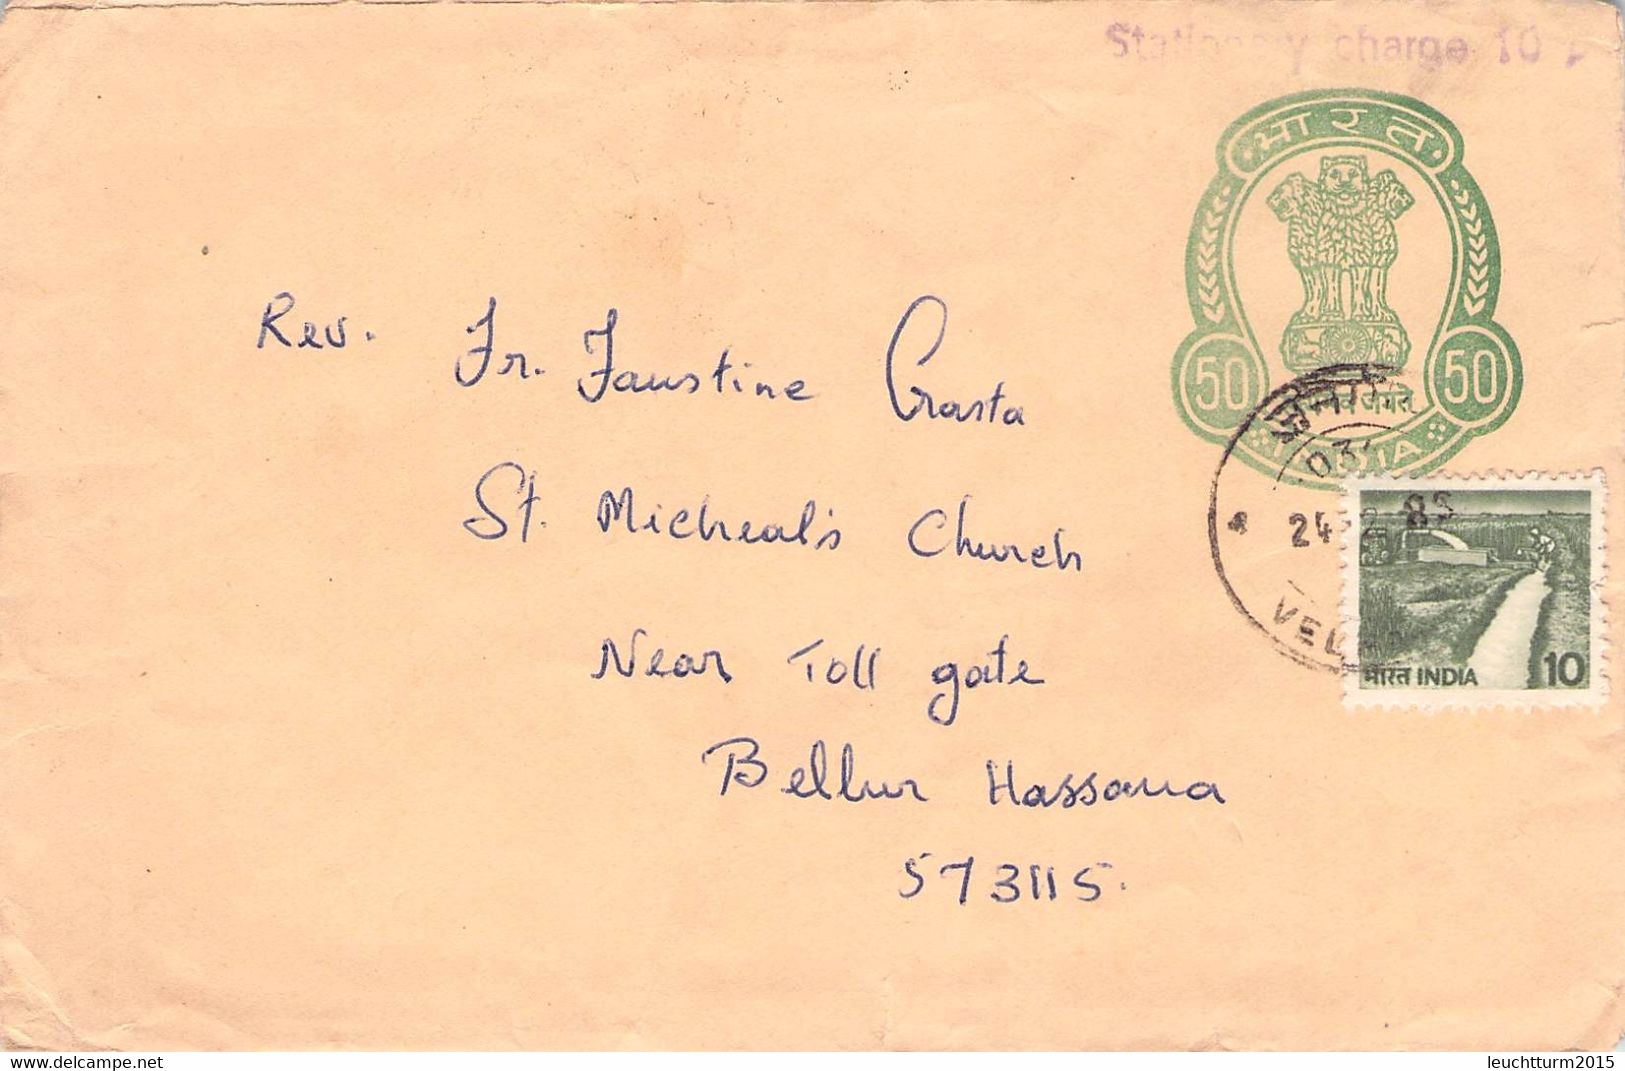 Stationery charge 10 P
भारत
50 50
सत्यमेव जयते
INDIA
Rev. Fr. Faustine Crasta
St. Micheal's Church
Near Toll gate
Bellur Hassana
573115.
24 2 85
भारत INDIA 10
leuchtturm2015
delcampe.net